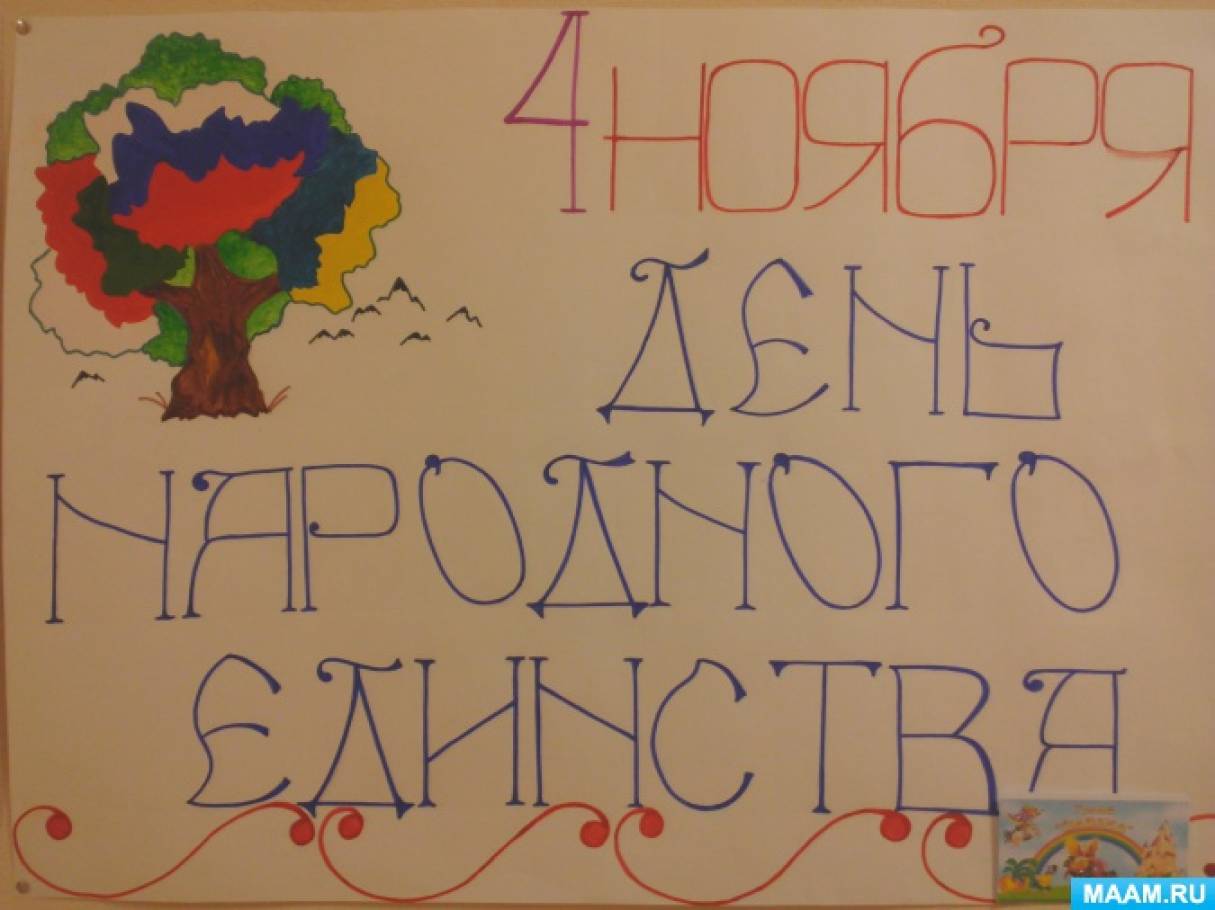 4 НОЯБРЯ
ДЕНЬ
НАРОДНОГО
ЕДИНСТВА
MAAM.RU